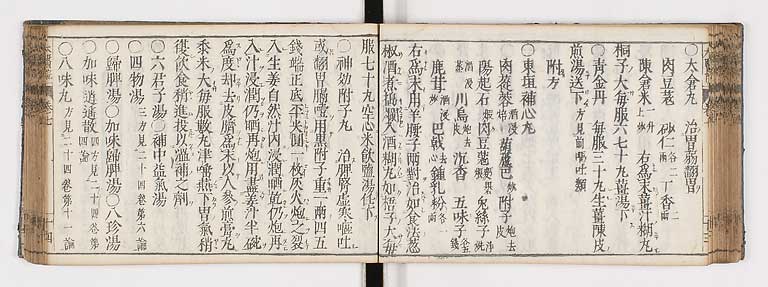 ○大倉丸　治胃弱翻胃
肉豆蔲　砂仁各二　丁香二
陳倉米一升　右為末薑汁糊丸
桐子大每服六七十丸薑湯下
○青金丹　每服三十丸生薑陳皮
煎湯送下　方見前嘔吐類
附方
○東垣補心丸
肉蓯蓉酒浸　葫蘆巴炒　附子炮去皮
陽起石　肉豆蔲　兔絲子
川烏炮去　沉香　五味子各五錢
鹿茸酒浸　巴戟去心　鍾乳粉
右為末用羊腰子兩對治如食法葱
椒酒煮搗爛入酒糊丸如梧子大每
服七十丸空心米飲鹽湯任下
○神効附子丸　治脾腎虛寒嘔吐
或翻胃膈噎用黑附子重一兩四五
錢端正底平尖圓一枚灰火炮之裂
入生薑自然汁內浸潤晒乾仍炮再
入汁浸潤仍晒再炮用盡薑汁半碗
為度却去皮臍為末以人參煎膏丸
黍米大每服數丸津嚥燕下胃氣稍
復飲食稍進投以溫補之劑
○六君子湯○補中益氣湯
○四物湯　三方見二十四卷第六論
○歸脾湯○加味歸脾湯○八珍湯
○加味逍遙散　四方見二十四卷第四論
○八味丸　方見二十四卷第十一論